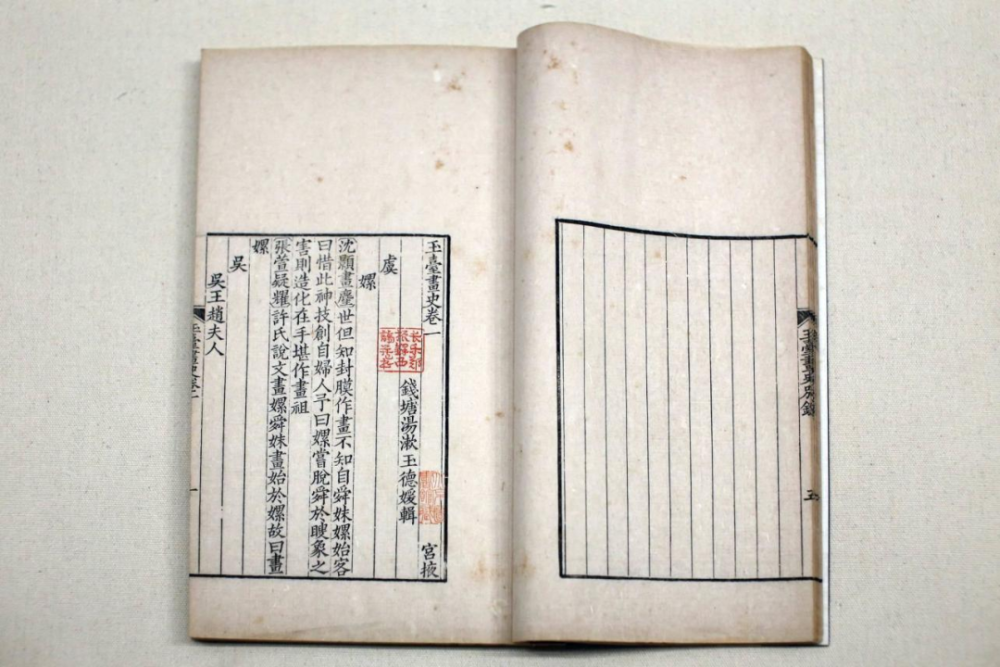 玉臺畫史別錄
五
玉臺畫史卷一
宮掖
長樂鄭
振鐸西
諦藏書
錢塘湯漱玉德媛輯
虞
嫘
沈顥畫麈世但知封膜作畫不知自舜妹嫘始客
曰惜此神技創自婦人予曰嫘嘗脫舜於瞍象之
害則造化在手堪作畫祖
張萱疑耀許氏說文畫嫘舜妹畫始於嫘故曰畫
嫘
吳
吳王趙夫人
玉臺畫史卷一
一